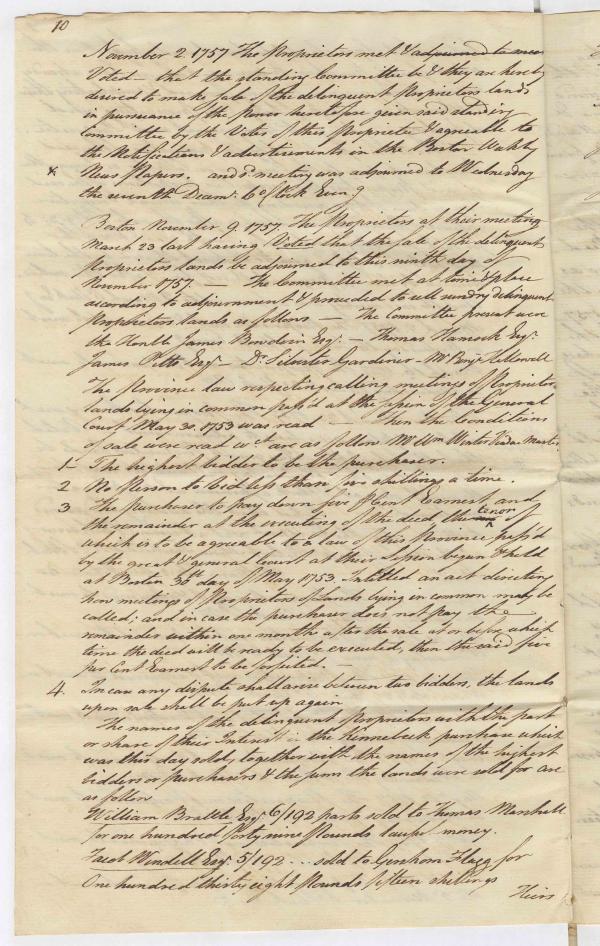 10
November 2. 1757 The Proprietors met & adjourned to mee
Voted — that the standing Committee be & they are hereby
desired to make sale of the delinquent Proprietors lands
in pursuance of the Power heretofore given said standing
Committee by the Votes of this Proprietee & agreable to
the Notifications & advertisements in the Boston Weekly
x News Papers. and ye meeting was adjourned to Wednesday
the seventh Decemr. 6 oClock Eveng
Boston November 9. 1757. The Proprietors at their meeting
March 23 last having Voted that the sale of the delinquent
Proprietors lands be adjourned to this ninth day of
November 1757. — The Committee met at time & place
according to adjournment & proceeded to sell sundry delinquent
Proprietors lands as follows — The Committee present were
the Honble James Bowdoin Esq. — Thomas Hancock Esqr.
James Pitts Esqr — Dr. Silvester Gardiner — Mr Benja Hallowell
The Province law respecting calling meetings of Proprietors
lands lying in common pass'd at the session of the General
Court May 30. 1753 was read — Then the Conditions
of sale were read wch are as follow Mr Wm Winter Vendue Master
1 — The highest bidder to be the purchaser.
2 No Person to bid less than five shillings a time.
3 The Purchaser to pay down five P Cent Earnest and
the remainder at the executing of the deed, the tenor of
which is to be agreable to a law of this Province pass'd
by the great & general Court at their Session begun & held
at Boston 30th day of May 1753. Intitled an act directing
how meetings of Proprietors of lands lying in common may be
called; and in case the purchaser does not pay the
remainder within one month after the sale at or before which
time the deed will be ready to be executed, then the said five
per Cent Earnest to be forfeited. —
4. In case any dispute shall arise between two bidders, the lands
upon sale shall be put up again
The names of the delinquent Proprietors with the part
or share of their Interest in the Kennebeck purchase which
was this day sold, together with the names of the highest
bidders or purchasers & the sums the lands were sold for are
as follow
William Brattle Esqr 6/192 parts sold to Thomas Marshall
for one hundred forty nine Pounds lawful money.
Jacob Wendell Esqr. 5/192 ... sold to Gershom Flagg for
One hundred thirty eight Pounds fifteen shillings
Heirs